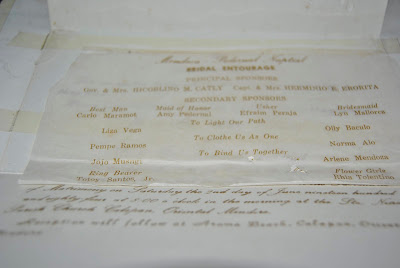 Mendoza Paternal Capital
BRIDAL ENTOURAGE
PRINCIPAL SPONSORS
Gov & Mrs. RICOBLINO M. CATLY Capt. & Mrs. HERMINIO E. EBORITA
SECONDARY SPONSORS
Best Man Maid of Honor Usher Bridesmaid
Carlo Maramot Amy Paternal Efraim Peraja Lyn Mallorca
To Light Our Path
Liza Vega Olly Bacalo
To Clothe Us As One
Pempe Ramos Norma Alo
To Bind Us Together
Jojo Musngi Arlene Mendoza
Ring Bearer Flower Girls
Jr. Rhia Tolentino
of Matrimony on Saturday the 2nd day of June nineteen hundred
and eighty four at 8:00 o'clock in the morning at the Sto. Niño
Church Calapan, Oriental Mindoro.
Reception will follow at Aroma Beach, Calapan, Oriental